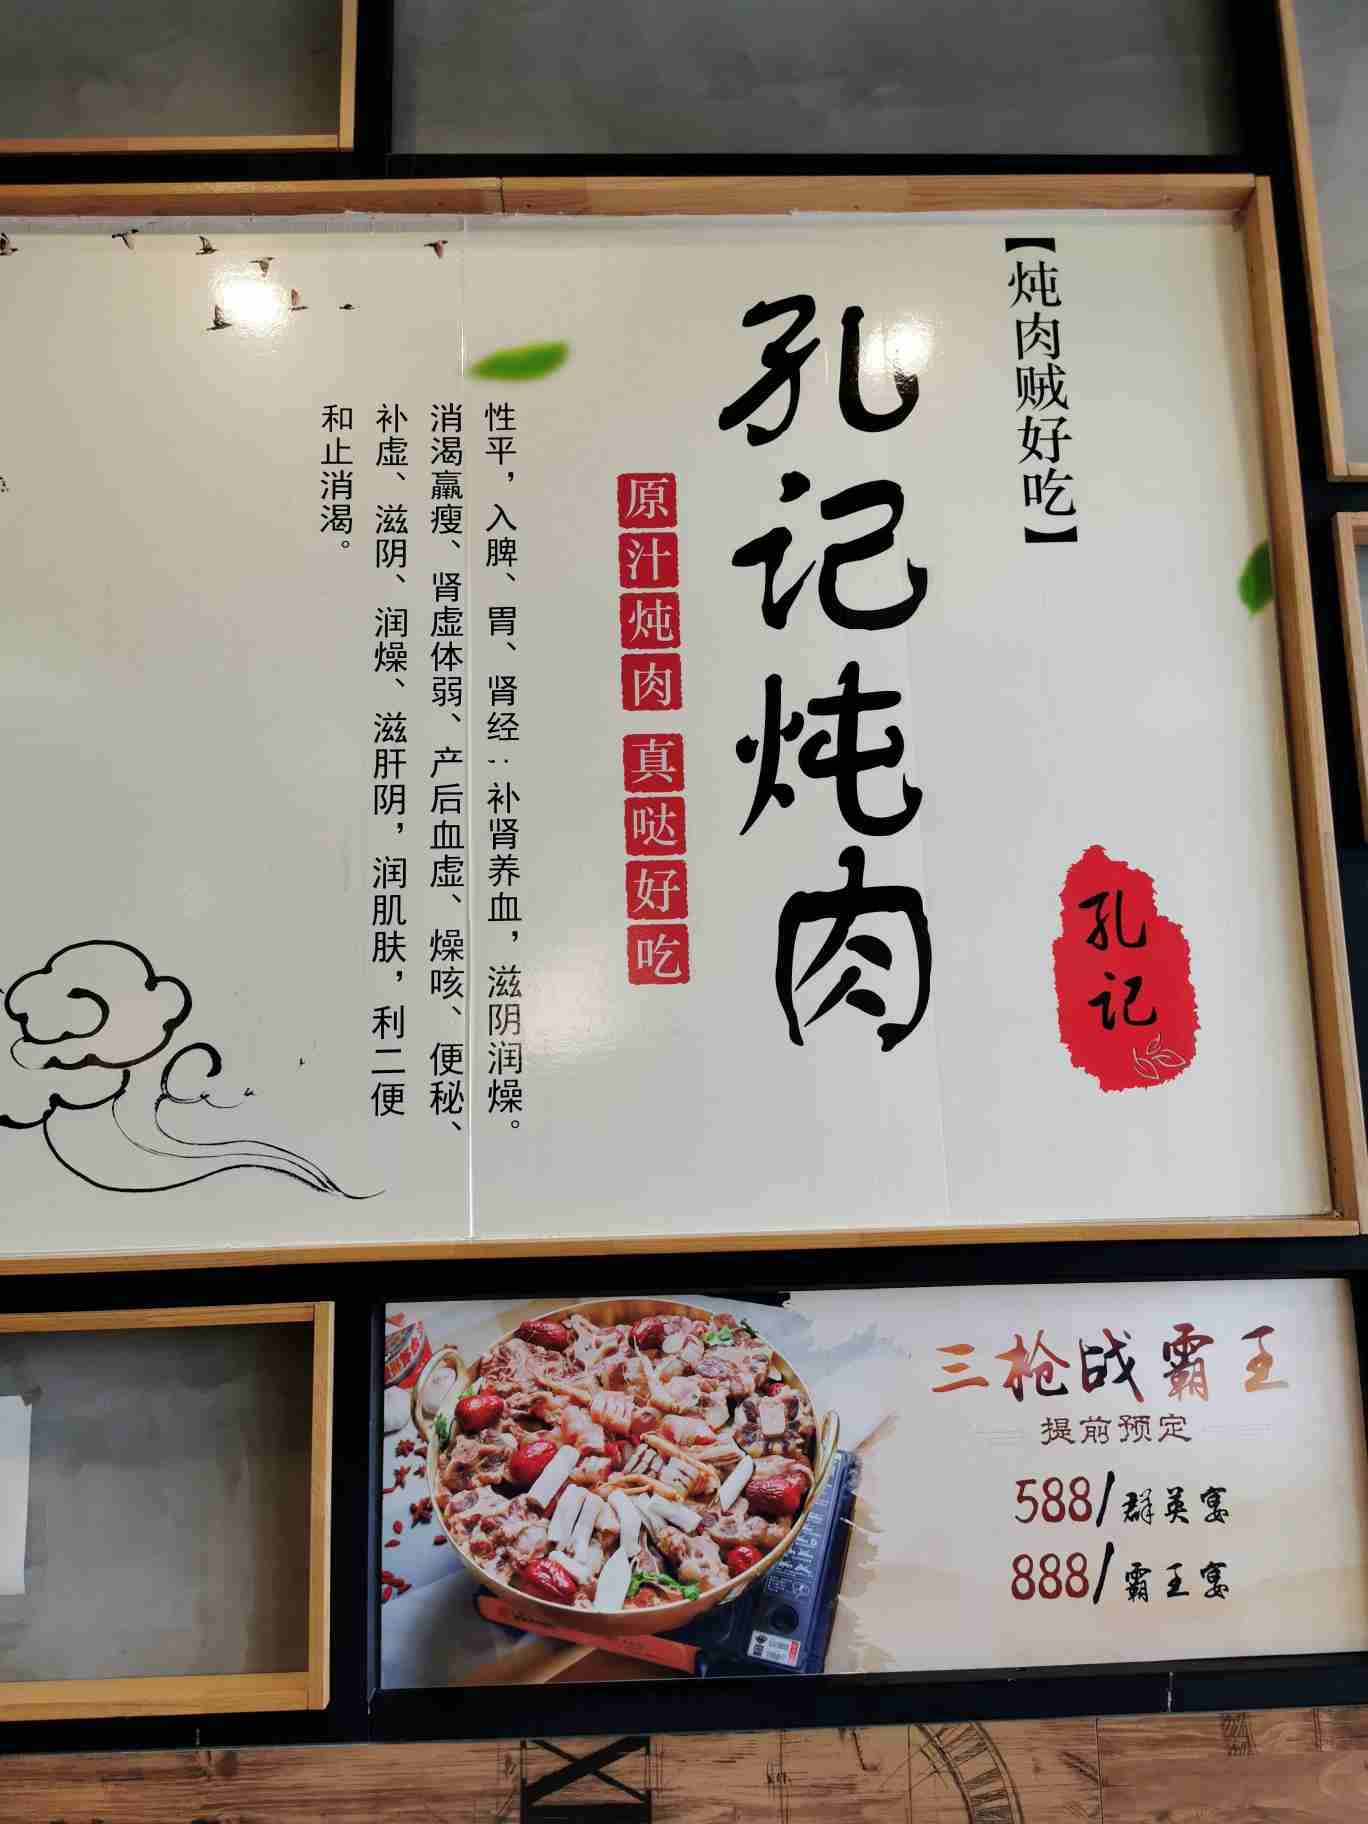 【炖肉贼好吃】
孔记炖肉
孔记
原汁炖肉 真哒好吃
性平，入脾、胃、肾经；补肾养血，滋阴润燥。
消渴羸瘦、肾虚体弱、产后血虚、燥咳、便秘、
补虚、滋阴、润燥、滋肝阴，润肌肤，利二便
和止消渴。
三枪战霸王
提前预定
588/群英宴
888/霸王宴